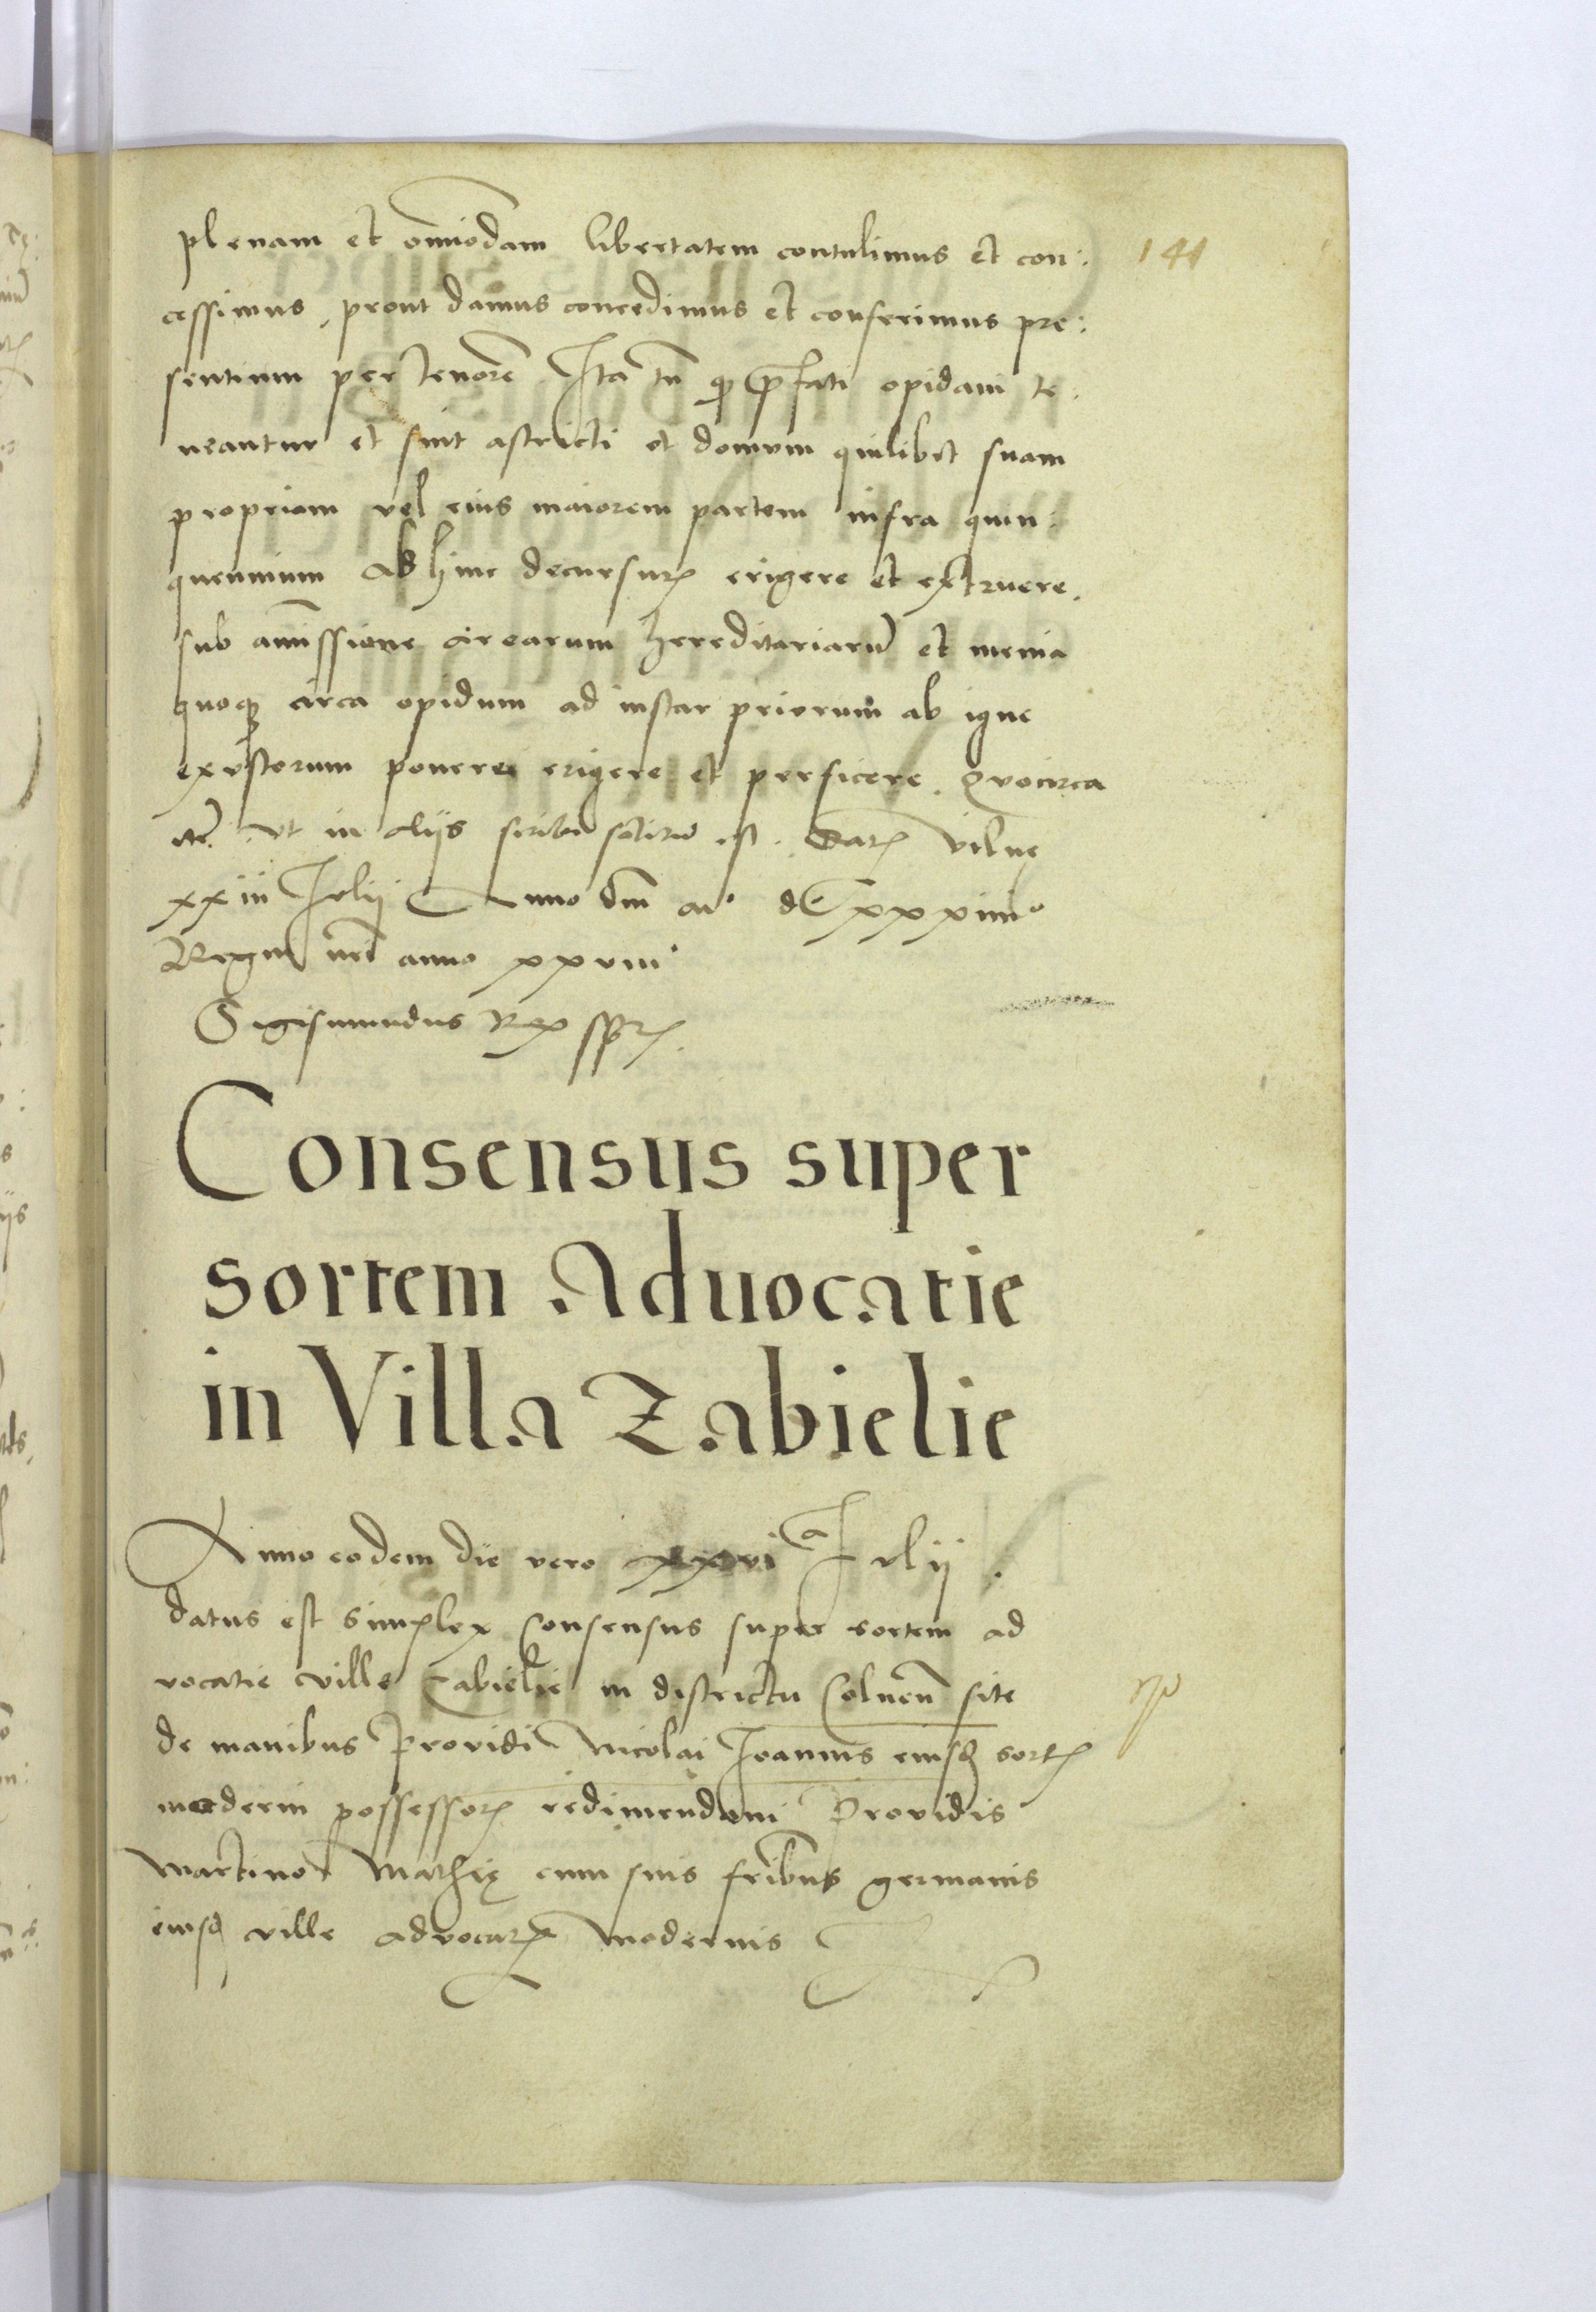 141
plenam et omniodam libertatem contulimus et con:
cessimus, prout damus concedimus et conferimus pre:
sentium per tenorē Ita tn̄ q̄ p̄fati opidani te.
neantur et sint astricti et domum quilibet suam
propriam vel eius maiorem partem infra quin:
quennium Abhinc decursur erigere et extruere.
sub amissione arearum hereditariarū et menia
quoq circa opidum ad instar priorum ab igne
exustorum ponere erigere et perficere. Quocirca
etc. vt in aliis scribi solitū est. Dat Vilne
xxiii Iulii Anno dnī m° dCxxxiiii°
Regni nrī anno xxviii°
Sigismundus Rex sst
Consensus super
sortem Aduocatie
in Villa Zabielie
Anno eodem die vero xxvi a Iulii
datus est simplex consensus super sortem ad
vocatie ville Zabielie in districtu Colnen̄ site
de manibus Providi Nicolai Ioannis eiusd sort
moderni possessor redimendam Providis
Martino Mathie cum suis fribus germanis
eiusd ville advocat modernis